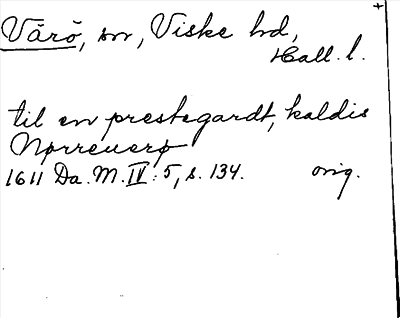 Värö, sn, Viske hd,
Hall. l.
til en prestegardt, kaldis
Nørreuerø
1611 Da. M. IV: 5, s. 134. orig.